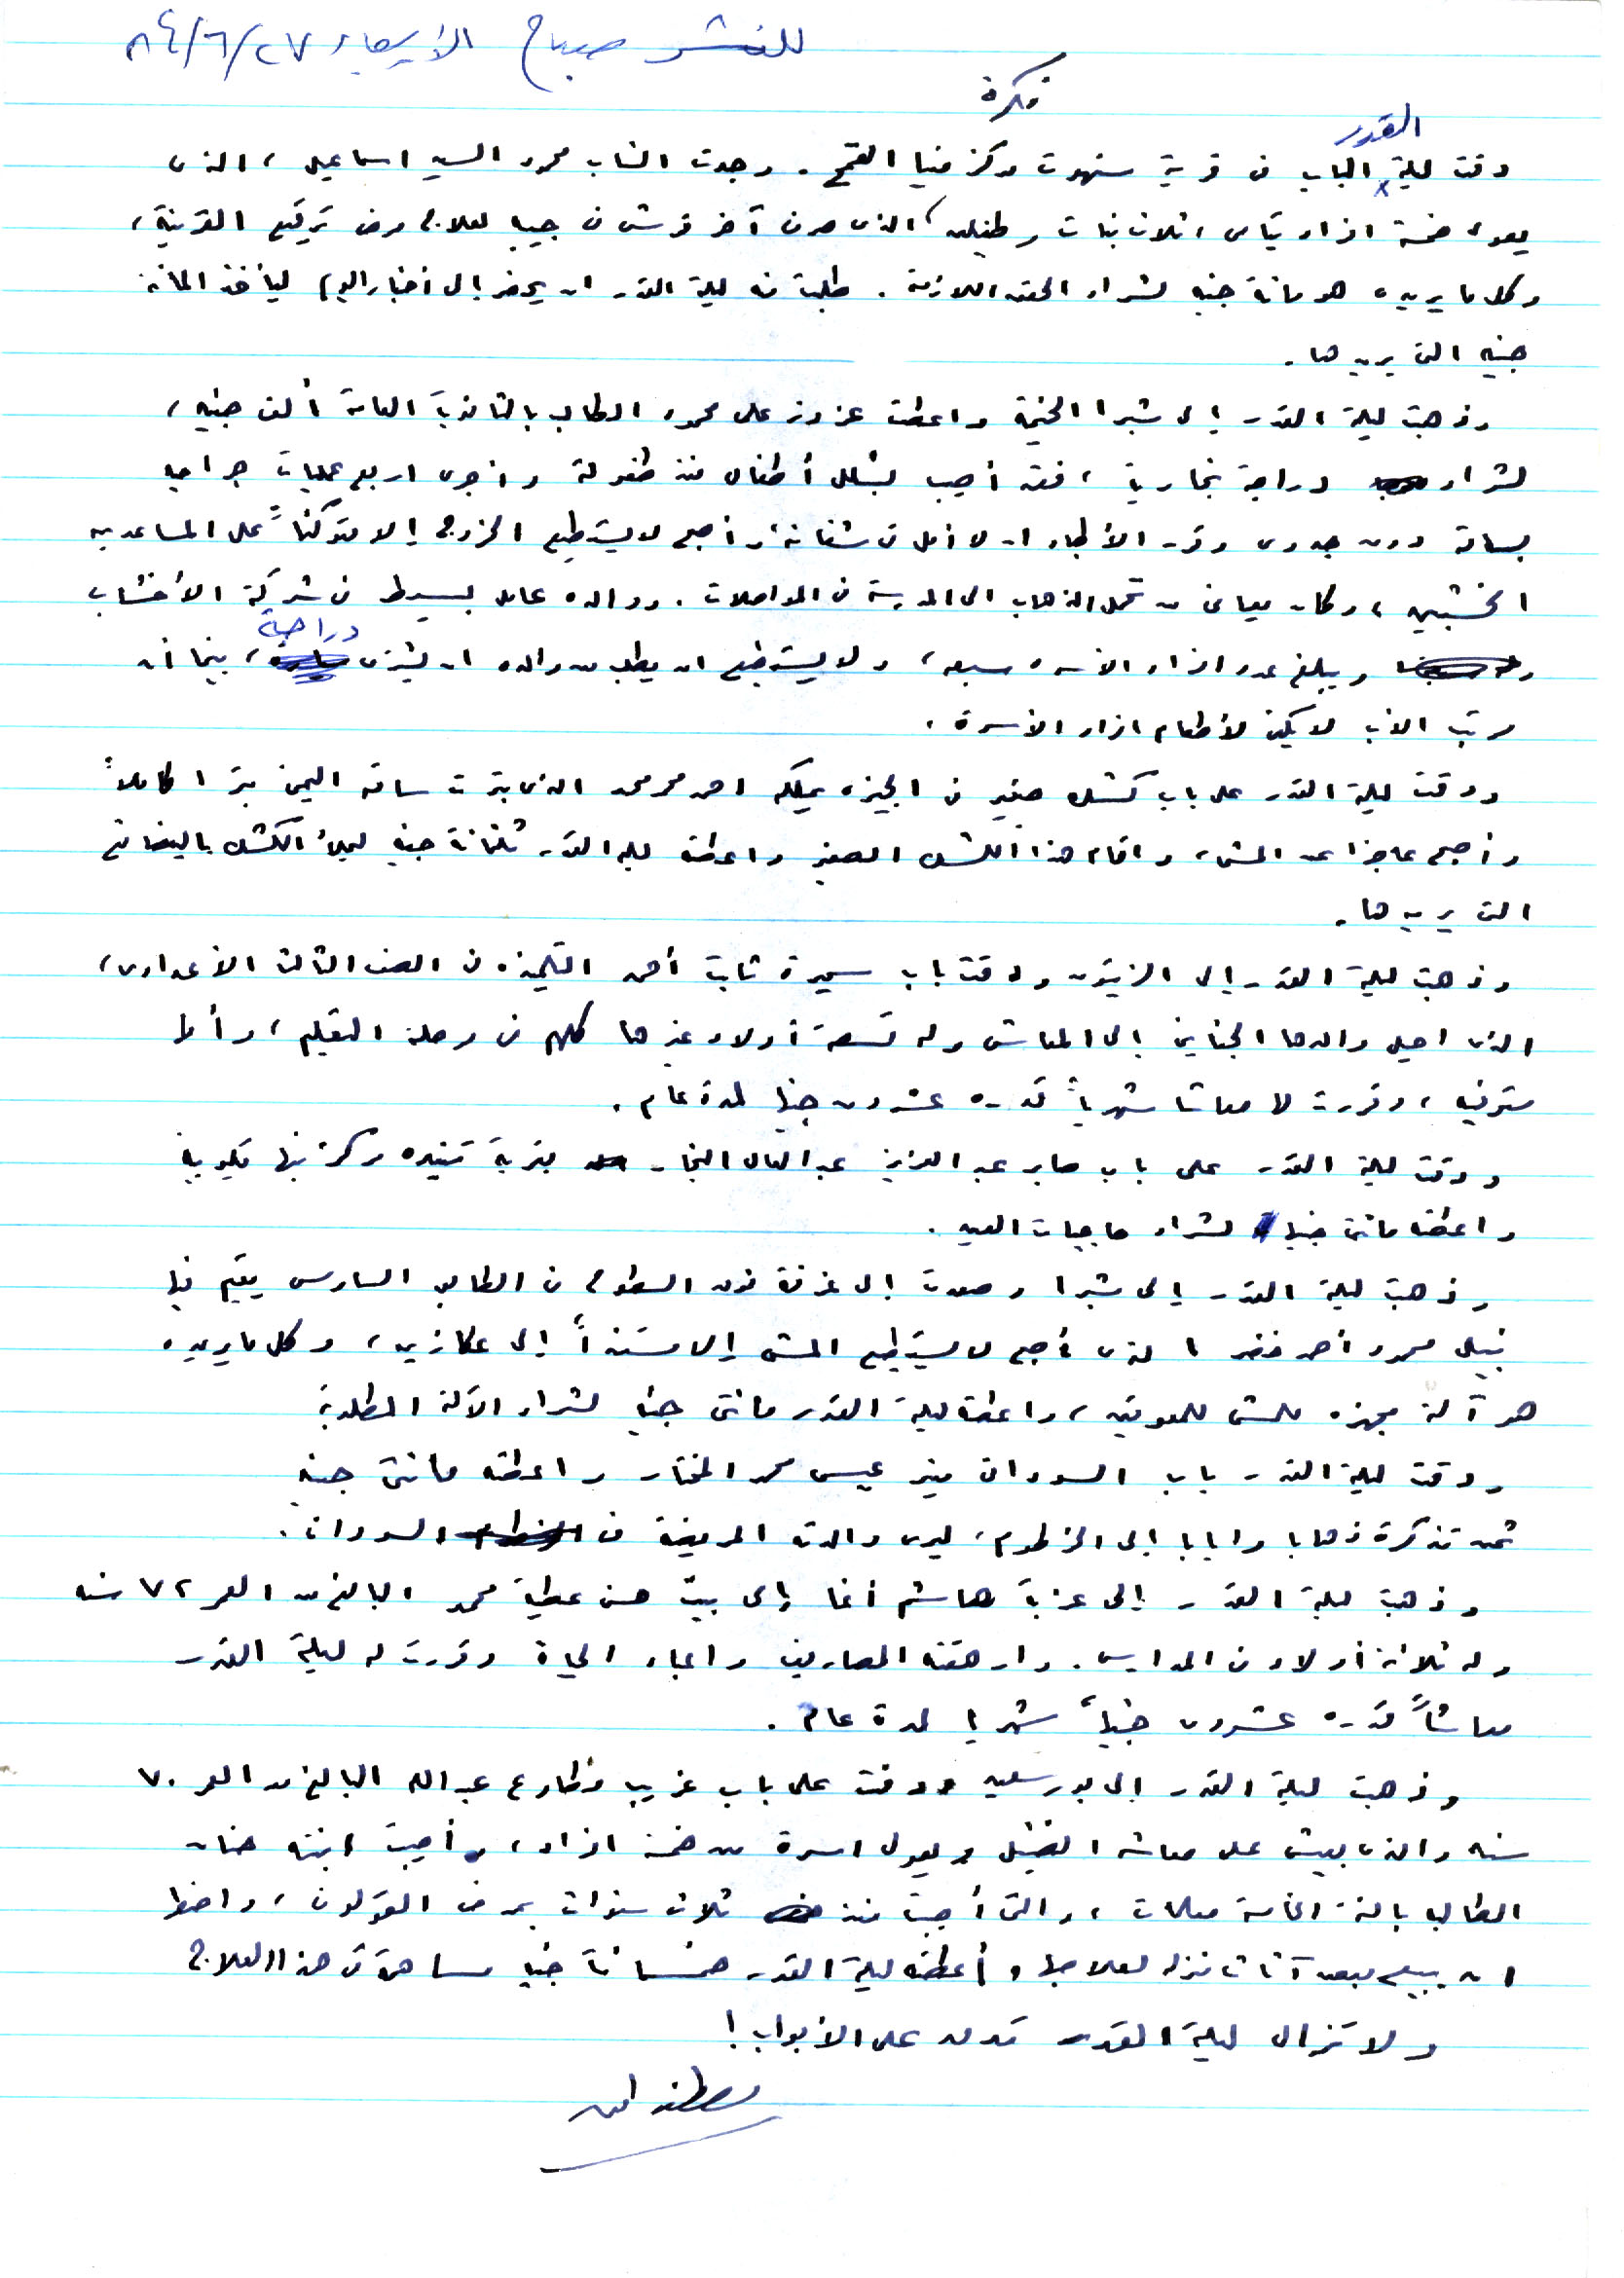 للنشر صباح الأربعاء ٨٤/٦/٢٧
فكرة
دقت ليلة القدر الباب فى قرية سنهوت مركز منيا القمح . وجدت الشاب محمود السيد اسماعيل ، الذى
يعول خمسة افراد يتامى ، ثلاث بنات وطفلين ، الذى صرف آخر قرش فى جيبه لعلاج مرض ترقيع القرنية ،
وكل ما يريده هو مائة جنيه لشراء الحقن اللازمة . طلبت منه ليلة القدر ان يحضر إلى أخبار اليوم ليأخذ المائة
جنيه التى يريدها .
وذهبت ليلة القدر إلى شبرا الخيمة واعطت عزوز على محمود الطالب بالثانوية العامة ألف جنيه ،
لشراء دراجة بخارية ، فقد أصيب بشلل أطفال منذ طفولته وأجرى اربع عمليات جراحية
بساقه دون جدوى وقرر الأطباء ان لا أمل فى شفائه ، وأصبح لا يستطيع الخروج إلا متوكئاً على المساعدين
الخشبيين ، وكان يعانى من تحمل الذهاب الى المدرسة فى المواصلات . ووالده عامل بسيط فى شركة الأخشاب
ويبلغ عدد افراد الأسرة سبعة ، ولا يستطيع ان يطلب من والده ان يشترى دراجة ، بينما أن
مرتب الأب لا يكفى لأطعام افراد الأسرة .
ودقت ليلة القدر على باب كشك صغير فى الجيزة يملكه احمد محمد الذى بترت ساقه اليمنى بترا كاملاً
وأصبح عاجزا عن المشى ، واقام هذا الكشك الصغير واعطته ليلة القدر ثلثمائة جنيه ليملأ الكشك بالبضائع
التى يريدها .
وذهبت ليلة القدر إلى الزيتون ودقت باب سميرة ثابت أحمد التلميذة فى الصف الثالث الأعدادى ،
الذى احيل والدها الجناينى إلى المعاش وله تسعة أولاد غيرها كلهم فى مرحلة التعليم ، وأمها
متوفية ، وقررت لها معاشا شهرياً قدره عشرون جنيها لمدة عام .
ودقت ليلة القدر على باب صابر عبد العزيز عبد العال النجار بقرية مركز بنها قليوبية
واعطته مائتى جنيه لشراء حاجيات العيد .
وذهبت ليلة القدر إلى شبرا وصعدت إلى غرفة فوق السطوح فى الطابق السادس يقيم فيها
نبيل محمود أحمد خضر الذى أصبح لا يستطيع المشى إلا مستنداً إلى عكازين ، وكل ما يريده
هو آلة مجهزة للمشى للمعوقين ، واعطته ليلة القدر مائتى جنيه لشراء الآلة المطلوبة
ودقت ليلة القدر باب السودانى منير عيسى محمد المختار واعطته مائتى جنيه
ثمن تذكرة ذهابا وايابا إلى الخرطوم ، ليرى والدته المريضة فى السودان .
وذهبت ليلة القدر إلى عزبة هاشم أغا إلى بيت حسن عطية محمد البالغ من العمر ٧٢ سنه
وله ثلاثة أولاد فى المدارس . وارهقته المصاريف واعباء الحياة وقررت له ليلة القدر
معاشاً قدره عشرون جنيهاً شهريا لمدة عام .
وذهبت ليلة القدر إلى بورسعيد ودقت على باب غريب مطاوع عبد الله البالغ من العمر ٧٠
سنه والذى يعيش على معاشه الضئيل ويعول اسرة من خمسة افراد ، وأصيبت ابنته حنان
الطالبة بالسنة الخامسة معلمات ، والتى أصيبت منذ ثلاث سنوات بمرض القولون ، واضطر
ان يبيع بعض آثاث منزله لعلاجها وأعطته ليلة القدر خمسمائة جنيه مساهمة فى هذا العلاج
ولا تزال ليلة القدر تدق على الأبواب !
مصطفى امين